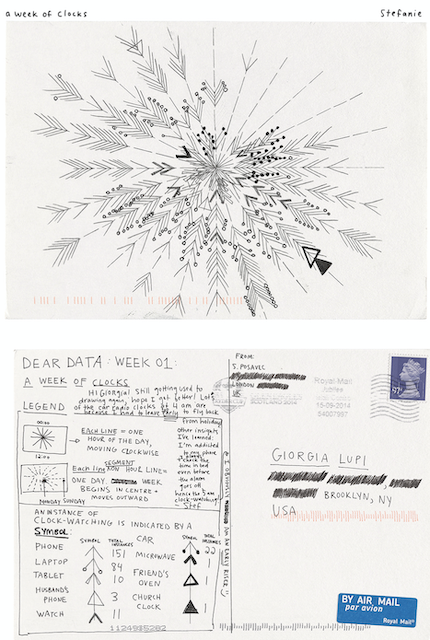 a week of clocks
Stefanie
DEAR DATA: WEEK 01:
A WEEK OF CLOCKS
Hi Giorgia! Still getting used to
drawing again, hope I get better! Lots
of the car radio clocks at 4 am are
because I had to leave early to fly back
From holiday
other insights
I've learned:
I'm addicted
to my phone
check the
time in bed
even before
the alarm
goes off
hence the 5am
clock-watching
- Stef
LEGEND
00:00
12:00
EACH LINE = ONE
HOUR OF THE DAY,
MOVING CLOCKWISE
Each line SEGMENT ON HOUR LINE =
ONE DAY. WEEK
BEGINS IN CENTRE +
MOVES OUTWARD
MONDAY SUNDAY
AN INSTANCE OF
CLOCK-WATCHING IS INDICATED BY A
SYMBOL:
SYMBOL TOTAL INSTANCES
SYMBOL TOTAL INSTANCES
PHONE 151
LAPTOP 84
TABLET 10
HUSBAND'S PHONE 3
WATCH 11
CAR 22
MICROWAVE 1
FRIEND'S OVEN 1
CHURCH CLOCK 1
AM AN EARLY RISER
FROM:
S. POSAVEC
LONDON
Royal Mail
Jubilee
15-09-2014
GIORGIA LUPI
BROOKLYN, NY
USA
BY AIR MAIL
par avion
Royal Mail